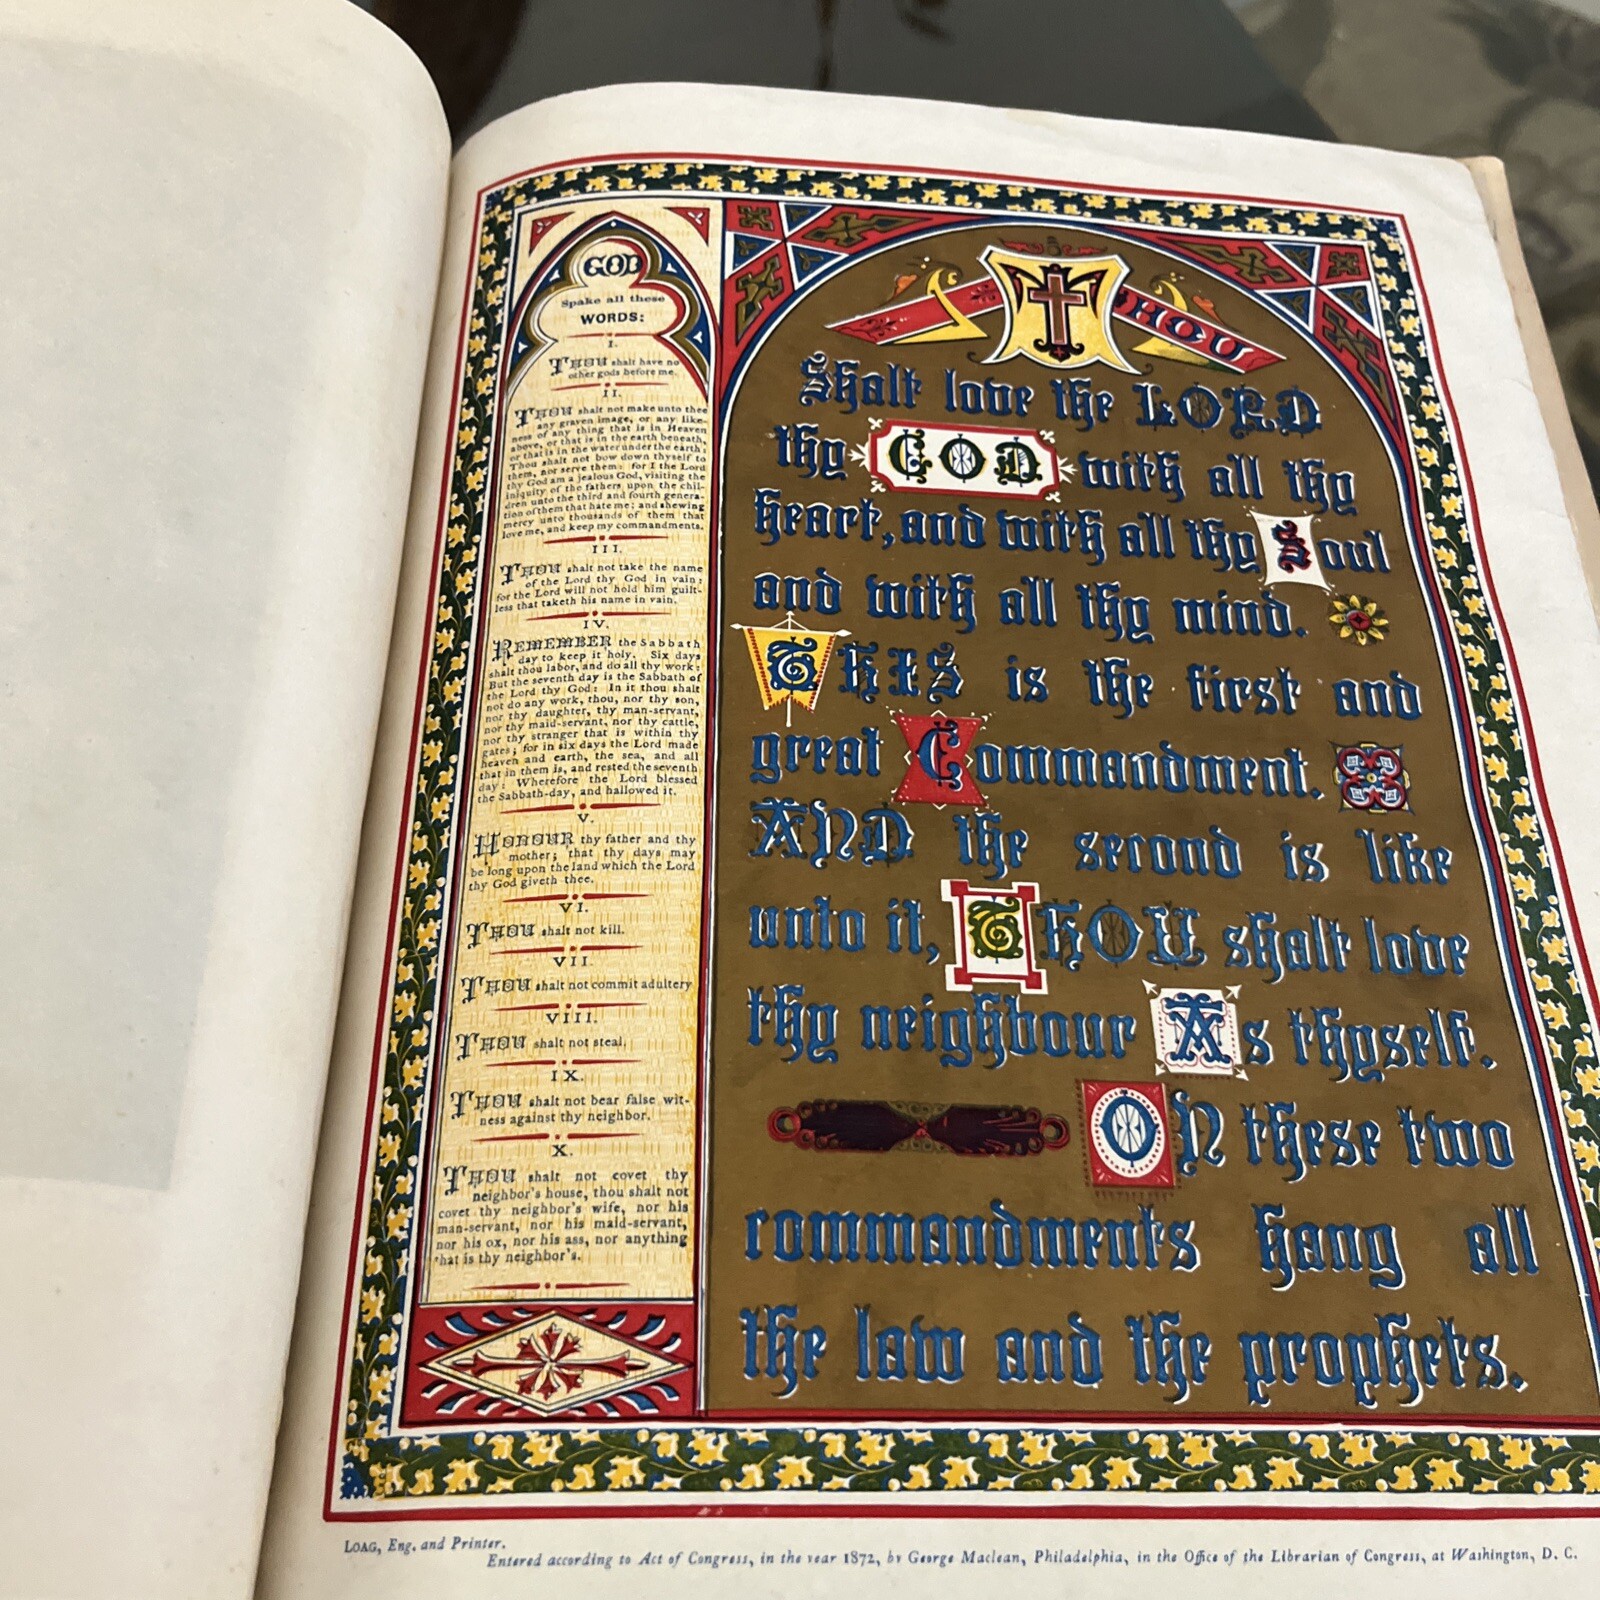 GOD
Spake all these
WORDS:
I.
THOU shalt have no
other gods before me.
II.
THOU shalt not make unto thee
any graven image, or any like-
ness of any thing that is in Heaven
above, or that is in the earth beneath,
or that is in the water under the earth:
Thou shalt not bow down thyself to
them, nor serve them: for I the Lord
thy God am a jealous God, visiting the
iniquity of the fathers upon the chil-
dren unto the third and fourth genera-
tion of them that hate me; and shewing
mercy unto thousands of them that
love me, and keep my commandments.
III.
THOU shalt not take the name
of the Lord thy God in vain:
for the Lord will not hold him guilt-
less that taketh his name in vain.
IV.
REMEMBER the Sabbath
day to keep it holy. Six days
shalt thou labor, and do all thy work:
But the seventh day is the Sabbath of
the Lord thy God: In it thou shalt
not do any work, thou, nor thy son,
nor thy daughter, thy man-servant,
nor thy maid-servant, nor thy cattle,
nor thy stranger that is within thy
gates; for in six days the Lord made
heaven and earth, the sea, and all
that in them is, and rested the seventh
day: Wherefore the Lord blessed
the Sabbath-day, and hallowed it.
V.
HONOUR thy father and thy
mother; that thy days may
be long upon the land which the Lord
thy God giveth thee.
VI.
THOU shalt not kill.
VII.
THOU shalt not commit adultery
VIII.
THOU shalt not steal.
IX.
THOU shalt not bear false wit-
ness against thy neighbor.
X.
THOU shalt not covet thy
neighbor's house, thou shalt not
covet thy neighbor's wife, nor his
man-servant, nor his maid-servant,
nor his ox, nor his ass, nor anything
that is thy neighbor's.
THOU
shalt love the LORD
thy GOD with all thy
heart, and with all thy Soul
and with all thy mind.
THIS is the first and
great Commandment.
AND the second is like
unto it, THOU shalt love
thy neighbour As thyself.
ON these two
commandments hang all
the law and the prophets.
LOAG, Eng. and Printer.
Entered according to Act of Congress, in the year 1872, by George Maclean, Philadelphia, in the Office of the Librarian of Congress, at Washington, D. C.